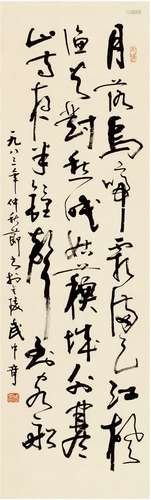 月落烏啼霜滿天江楓
漁火對愁眠姑蘇城外寒
山寺夜半鐘聲到客船
一九八三年仲秋節書於金陵武中奇